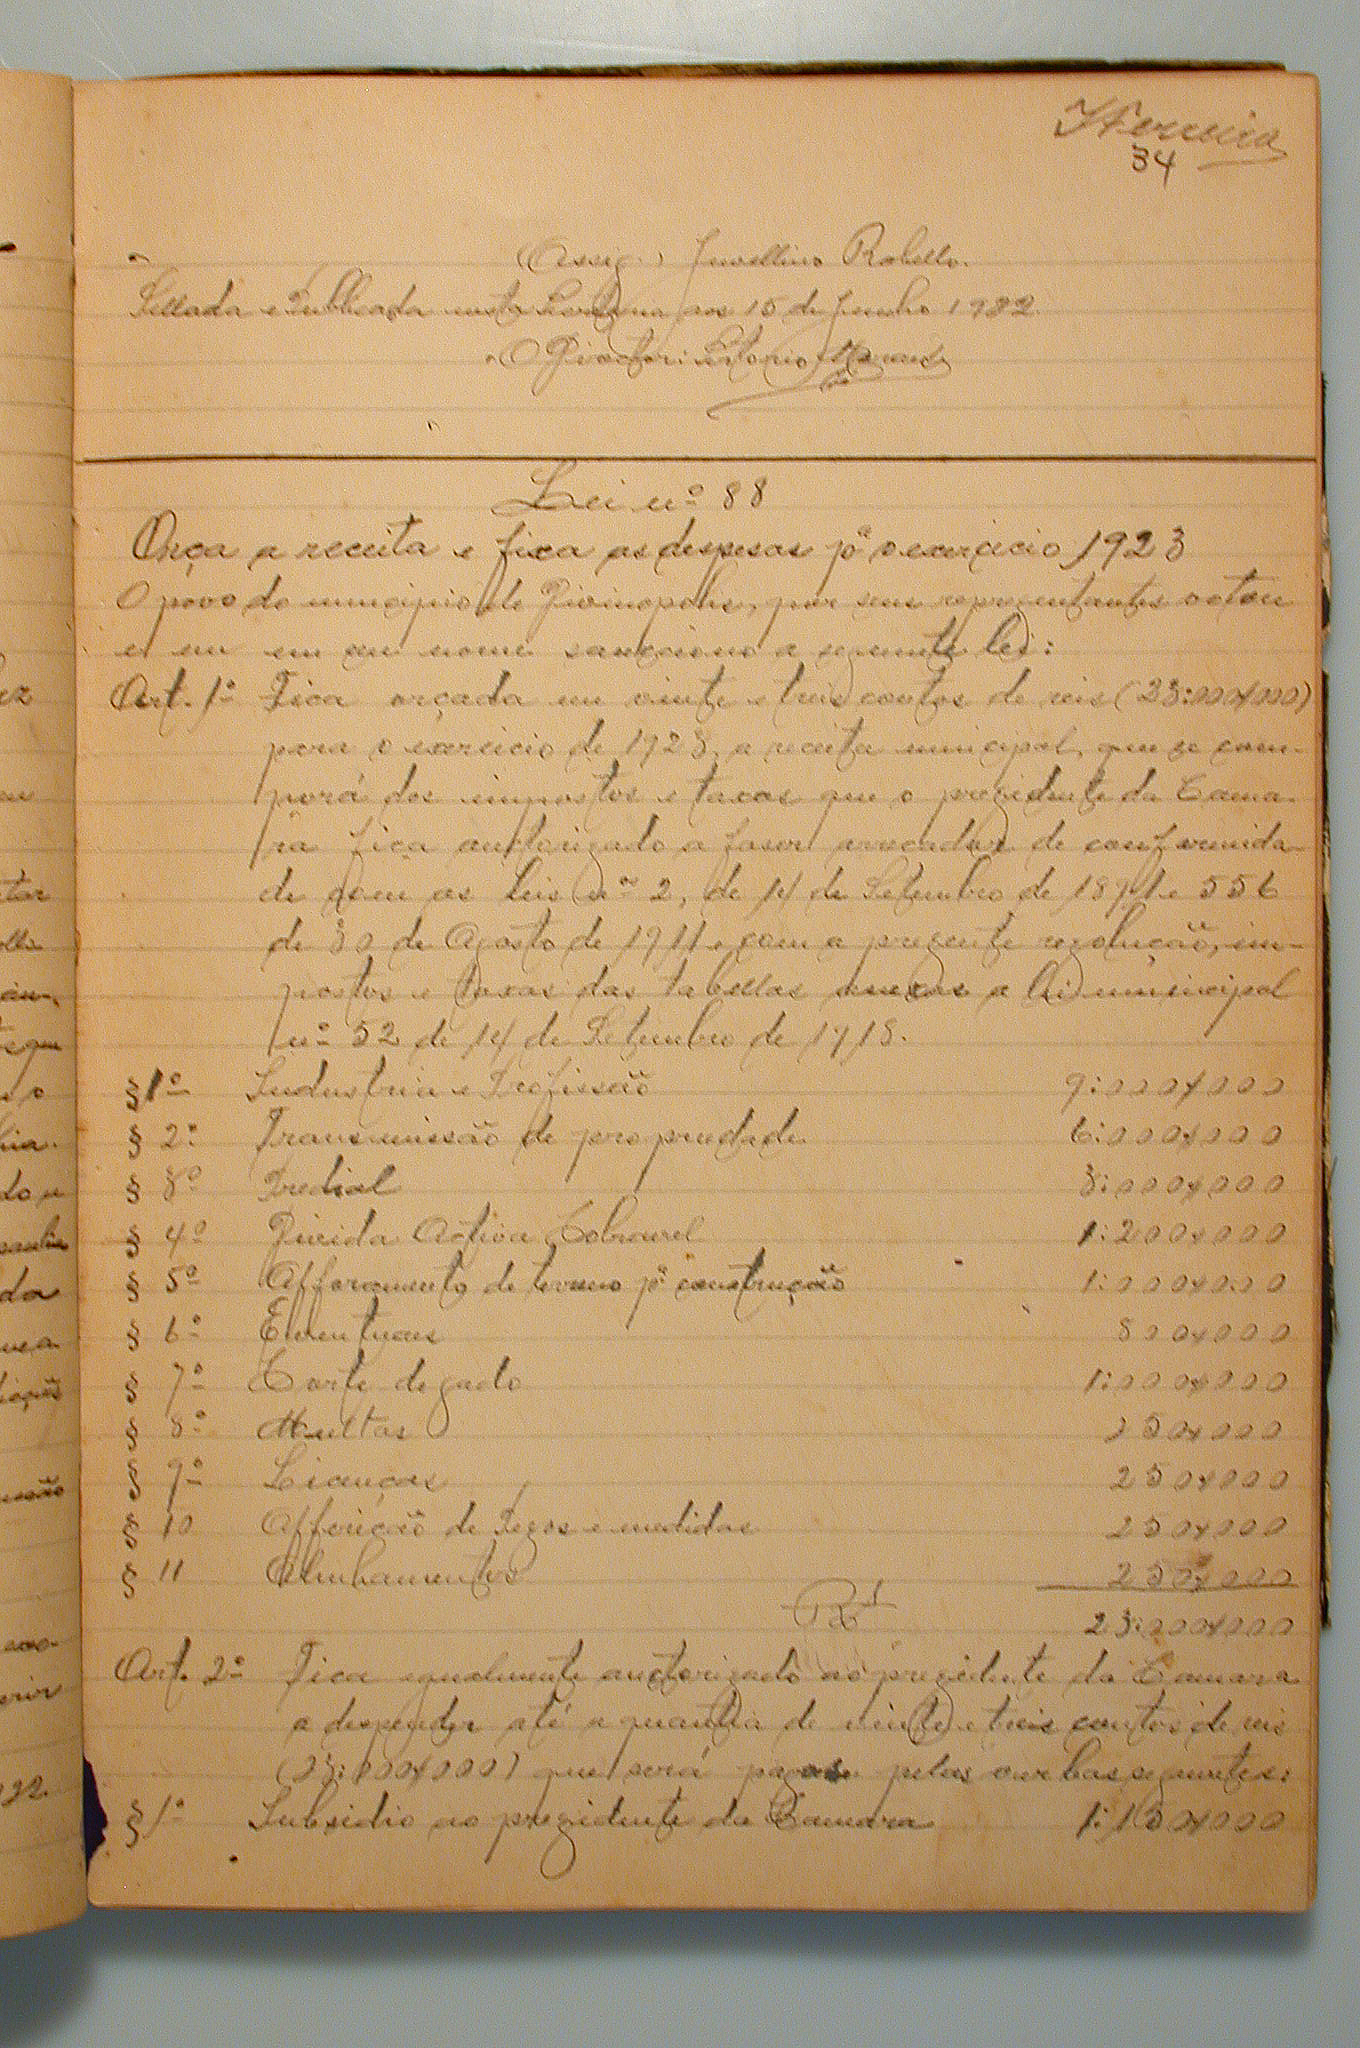 JFerreira
34
(Assig.) Juvellino Rabello.
Sellada e Publicada nesta Secretaria aos 15 de Junho 1922
O Director: Antonio
Lei nº 88
Orça a receita e fixa as despesas pª o exercicio 1923
O povo do municipio de Divinopolis, por seus representantes votou
e eu em seu nome sancciono a seguinte lei:
Art. 1º Fica orçada em vinte e tres contos de reis (23:000$000)
para o exercicio de 1923, a receita municipal, que se com-
porá dos impostos e taxas que o prezidente da Cama-
ra fica auctorizado a faser arrecadar de conformida-
de com as leis nos 2, de 14 de Setembro de 1891 e 556
de 30 de Agosto de 1911 e com a prezente rezolução, im-
postos e taxas das tabellas anexas a lei municipal
nº 52 de 14 de Setembro de 1918.
§ 1º Industria e Profissão 9:000$000
§ 2º Transmissão de propriedade 6:000$000
§ 3º Predial 3:000$000
§ 4º Divida Activa Cobravel 1:200$000
§ 5º Afforamento de terreno pª construcção 1:000$000
§ 6º Eventuaes 800$000
§ 7º Corte de gado 1:000$000
§ 8º Multas 250$000
§ 9º Licenças 250$000
§ 10 Afferição de Pezos e medidas 250$000
§ 11 Alinhamentos 250$000
Rs 23:000$000
Art. 2º Fica egualmente auctorizado ao prezidente da Camara
a despender até a quantia de vinte e treis contos de reis
(23:000$000) que será pagos pelas verbas seguintes:
§ 1º Subsidio ao prezidente da Camara 1:150$000